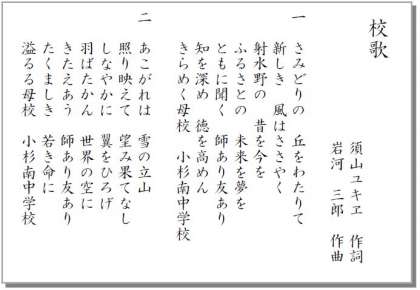 校歌
須山ユキヱ 作詞
岩河 三郎 作曲
一 さみどりの 丘をわたりて
新しき 風はささやく
射水野の 昔を今を
ふるさとの 未来を夢を
ともに聞く 師あり友あり
知を深め 徳を高めん
きらめく母校 小杉南中学校
二 あこがれは 雪の立山
照り映えて 望み果てなし
しなやかに 翼をひろげ
羽ばたかん 世界の空に
きたえあう 師あり友あり
たくましき 若き命に
溢るる母校 小杉南中学校